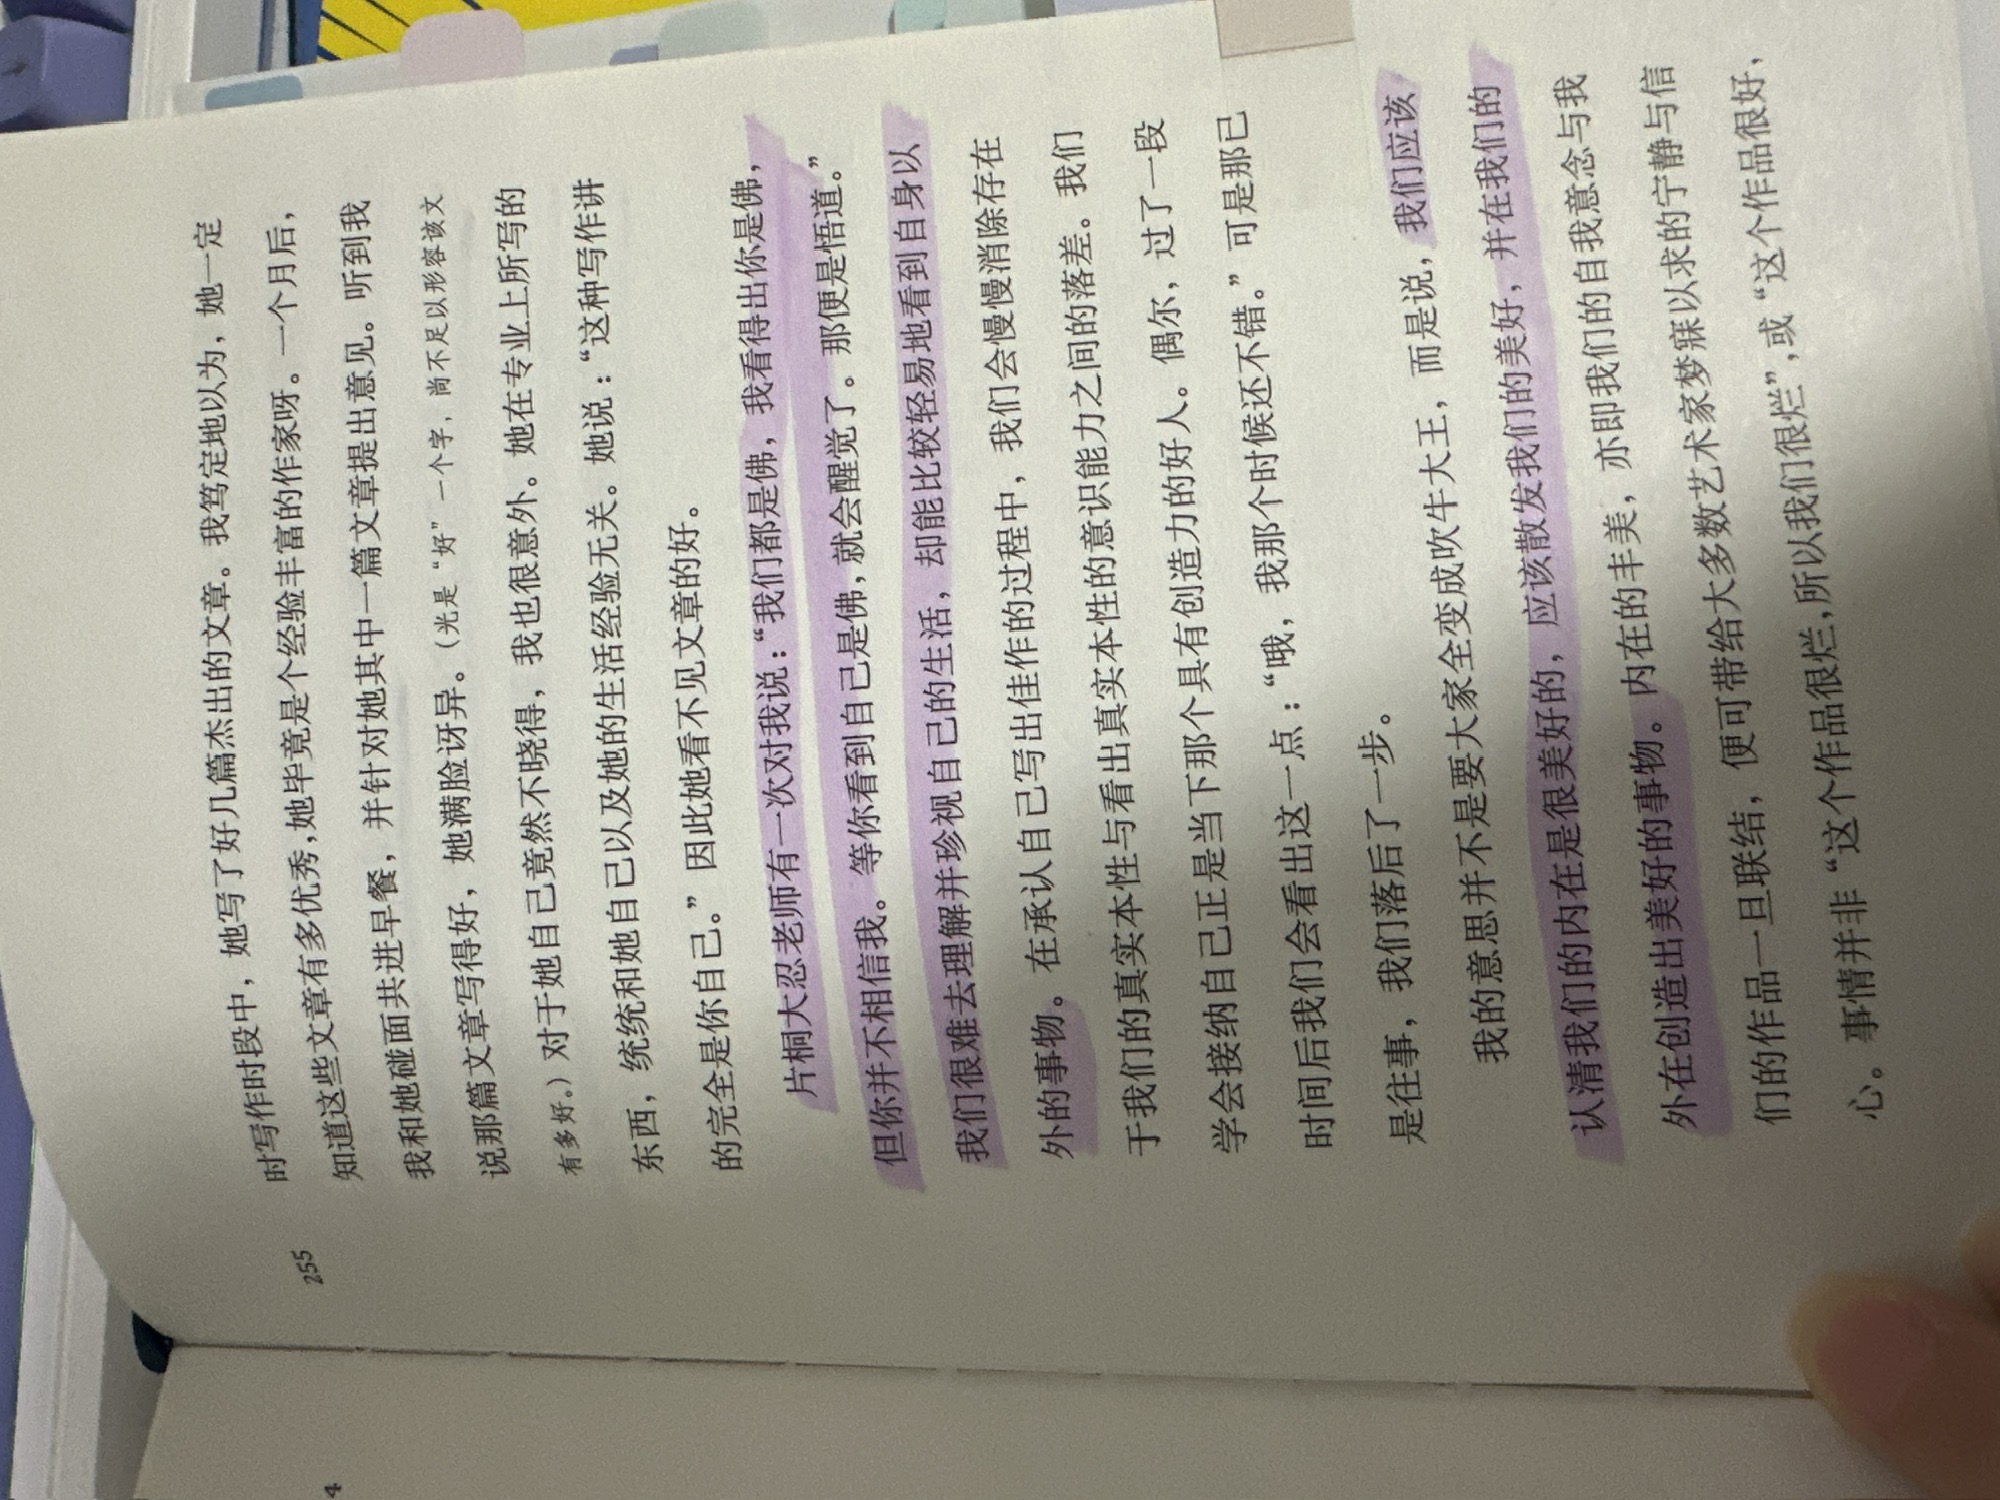 255
时写作时段中，她写了好几篇杰出的文章。我笃定地以为，她一定
知道这些文章有多优秀，她毕竟是个经验丰富的作家呀。一个月后，
我和她碰面共进早餐，并针对她其中一篇文章提出意见。听到我
说那篇文章写得好，她满脸讶异。（光是“好”一个字，尚不足以形容该文
有多好。）对于她自己竟然不晓得，我也很意外。她在专业上所写的
东西，统统和她自己以及她的生活经验无关。她说：“这种写作讲
的完全是你自己。”因此她看不见文章的好。
片桐大忍老师有一次对我说：“我们都是佛，我看得出你是佛，
但你并不相信我。等你看到自己是佛，就会醒觉了。那便是悟道。”
我们很难去理解并珍视自己的生活，却能比较轻易地看到自身以
外的事物。在承认自己写出佳作的过程中，我们会慢慢消除存在
于我们的真实本性与看出真实本性的意识能力之间的落差。我们
学会接纳自己正是当下那个具有创造力的好人。偶尔，过了一段
时间后我们会看出这一点：“哦，我那个时候还不错。”可是那已
是往事，我们落后了一步。
我的意思并不是要大家全变成吹牛大王，而是说，我们应该
认清我们的内在是很美好的，应该散发我们的美好，并在我们的
外在创造出美好的事物。内在的丰美，亦即我们的自我意念与我
们的作品一旦联结，便可带给大多数艺术家梦寐以求的宁静与信
心。事情并非“这个作品很烂，所以我们很烂”，或“这个作品很好，
4